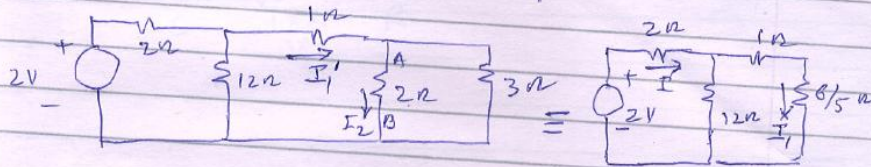 1Ω
2Ω
2V
+
-
12Ω
I₁'
A
2Ω
I₂
B
3Ω
≡
2Ω
1Ω
+
I
2V
-
12Ω
6/5 Ω
I₁